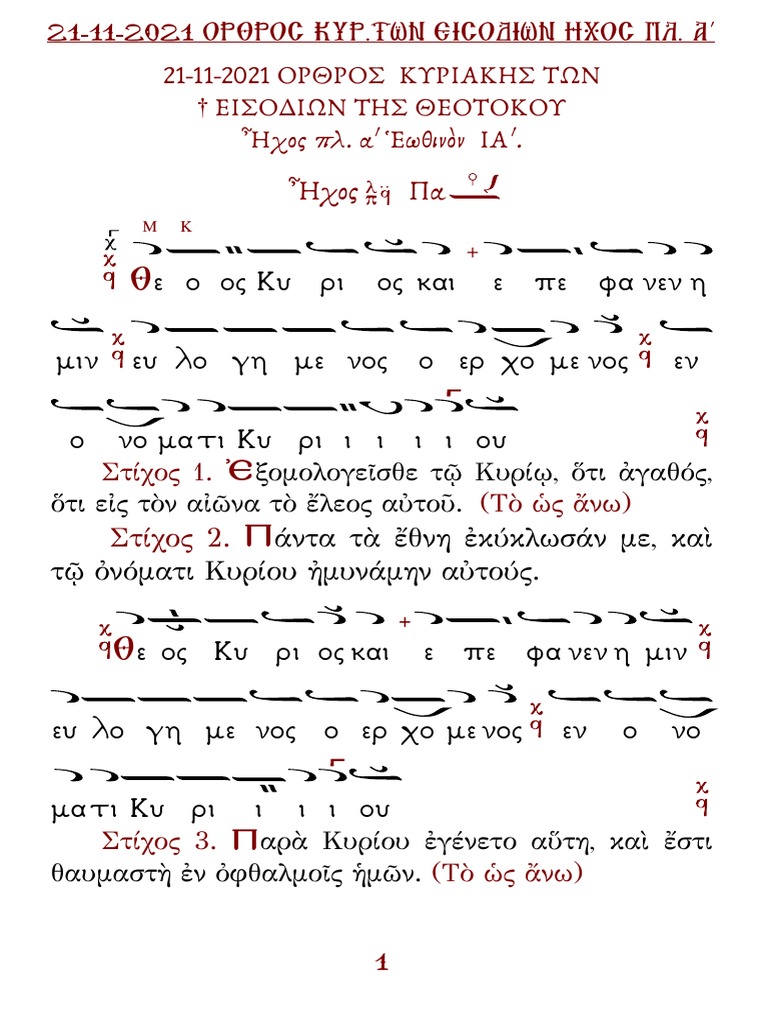 21-11-2021 ΟΡΘΡΟΣ ΚΥΡ.ΤΩΝ ΕΙΣΟΔΙΩΝ ΗΧΟΣ ΠΛ. Α΄
21-11-2021 ΟΡΘΡΟΣ ΚΥΡΙΑΚΗΣ ΤΩΝ
† ΕΙΣΟΔΙΩΝ ΤΗΣ ΘΕΟΤΟΚΟΥ
Ἦχος πλ. α΄ Ἑωθινὸν ΙΑ΄.
Ἦχος λ π q Πα
Μ Κ
Θε ο ος Κυ ρι ος και ε πε φα νεν η
μιν ευ λο γη με νος ο ερ χο με νος εν
ο νο μα τι Κυ ρι ι ι ι ι ου
Στίχος 1. Ἐξομολογεῖσθε τῷ Κυρίῳ, ὅτι ἀγαθός,
ὅτι εἰς τὸν αἰῶνα τὸ ἔλεος αὐτοῦ. (Τὸ ὡς ἄνω)
Στίχος 2. Πάντα τὰ ἔθνη ἐκύκλωσάν με, καὶ
τῷ ὀνόματι Κυρίου ἠμυνάμην αὐτούς.
Θε ος Κυ ρι ος και ε πε φα νεν η μιν
ευ λο γη με νος ο ερ χο με νος εν ο νο
μα τι Κυ ρι ι ι ι ου
Στίχος 3. Παρὰ Κυρίου ἐγένετο αὕτη, καὶ ἔστι
θαυμαστὴ ἐν ὀφθαλμοῖς ἡμῶν. (Τὸ ὡς ἄνω)
1